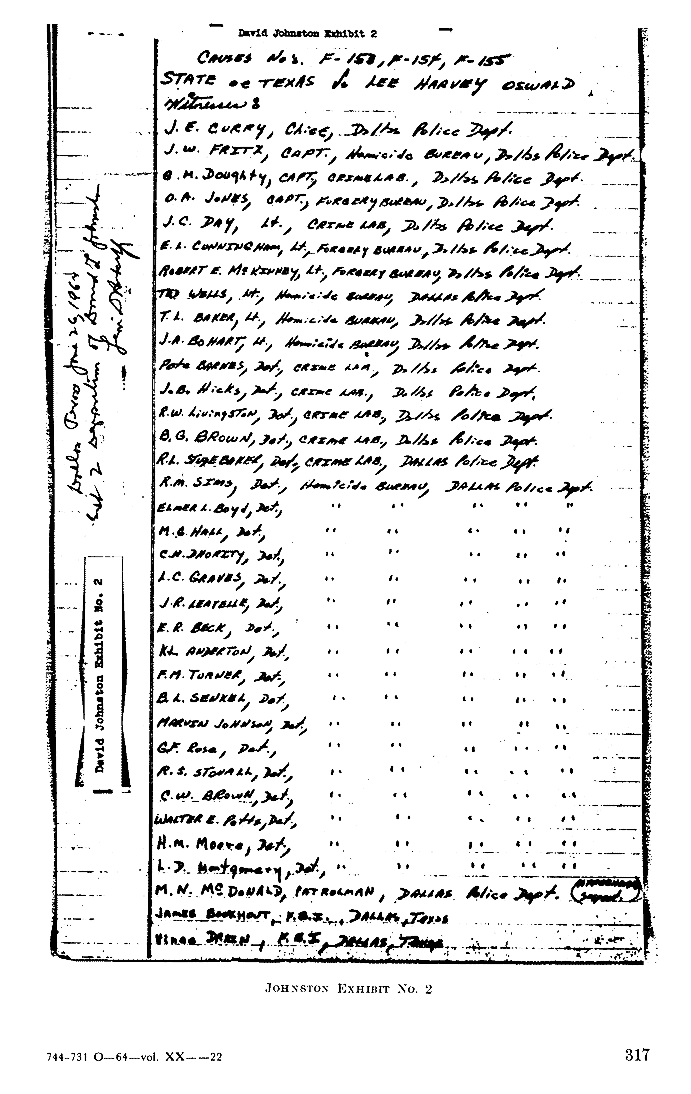 David Johnston Exhibit 2
CAUSES Nos. F-153, F-154, F-155
STATE OF TEXAS Vs LEE HARVEY OSWALD
Witnesses:
J. E. CURRY, Chief, Dallas Police Dept.
J. W. FRITZ, CAPT., Homicide BUREAU, Dallas Police Dept.
G. M. Doughty, CAPT, CRIME LAB., Dallas Police Dept.
O. A. JONES, CAPT, FORGERY BUREAU, Dallas Police Dept.
J. C. DAY, Lt., CRIME LAB, Dallas Police Dept.
E. L. CUNNINGHAM, Lt, FORGERY BUREAU, Dallas Police Dept.
ROBERT E. McKINNEY, Lt, FORGERY BUREAU, Dallas Police Dept.
TED WELLS, Lt, Homicide BUREAU, DALLAS Police Dept.
T. L. BAKER, Lt, Homicide BUREAU, Dallas Police Dept.
J. A. BOHART, Lt, Homicide BUREAU, Dallas Police Dept.
Pete BARNES, Det, CRIME LAB, Dallas Police Dept.
J. B. Hicks, Det, CRIME LAB., Dallas Police Dept.
R. W. Livingston, Det, CRIME LAB, Dallas Police Dept.
B. G. BROWN, Det, CRIME LAB, Dallas Police Dept.
R. L. STUDEBAKER, Det, CRIME LAB, DALLAS Police Dept.
R. M. SIMS, Det., Homicide BUREAU, DALLAS Police Dept.
ELMER L. Boyd, Det, " " " " "
M. G. HALL, Det, " " " " "
C. N. DHORITY, Det, " " " " "
L. C. GRAVES, Det, " " " " "
J. R. LEAVELLE, Det, " " " " "
E. R. BECK, Det, " " " " "
K. L. ANDERTON, Det, " " " " "
F. M. TURNER, Det, " " " " "
B. L. SENKEL, Det, " " " " "
MARVIN JOHNSON, Det, " " " " "
G. F. Rose, Det., " " " " "
R. S. STOVALL, Det, " " " " "
C. W. BROWN, Det, " " " " "
WALTER E. Potts, Det, " " " " "
H. M. Moore, Det, " " " " "
L. D. Montgomery, Det, " " " " "
M. N. McDONALD, PATROLMAN, DALLAS Police Dept.
JAMES BOOKHOUT, F.B.I., DALLAS, TEXAS
Vince DRAIN, F.B.I, DALLAS, TEXAS
Dallas Texas June 26, 1964
Ex 2 Deposition of David L Johnston
David Johnston Exhibit No. 2
JOHNSTON EXHIBIT No. 2
744-731 O—64—vol. XX——22
317